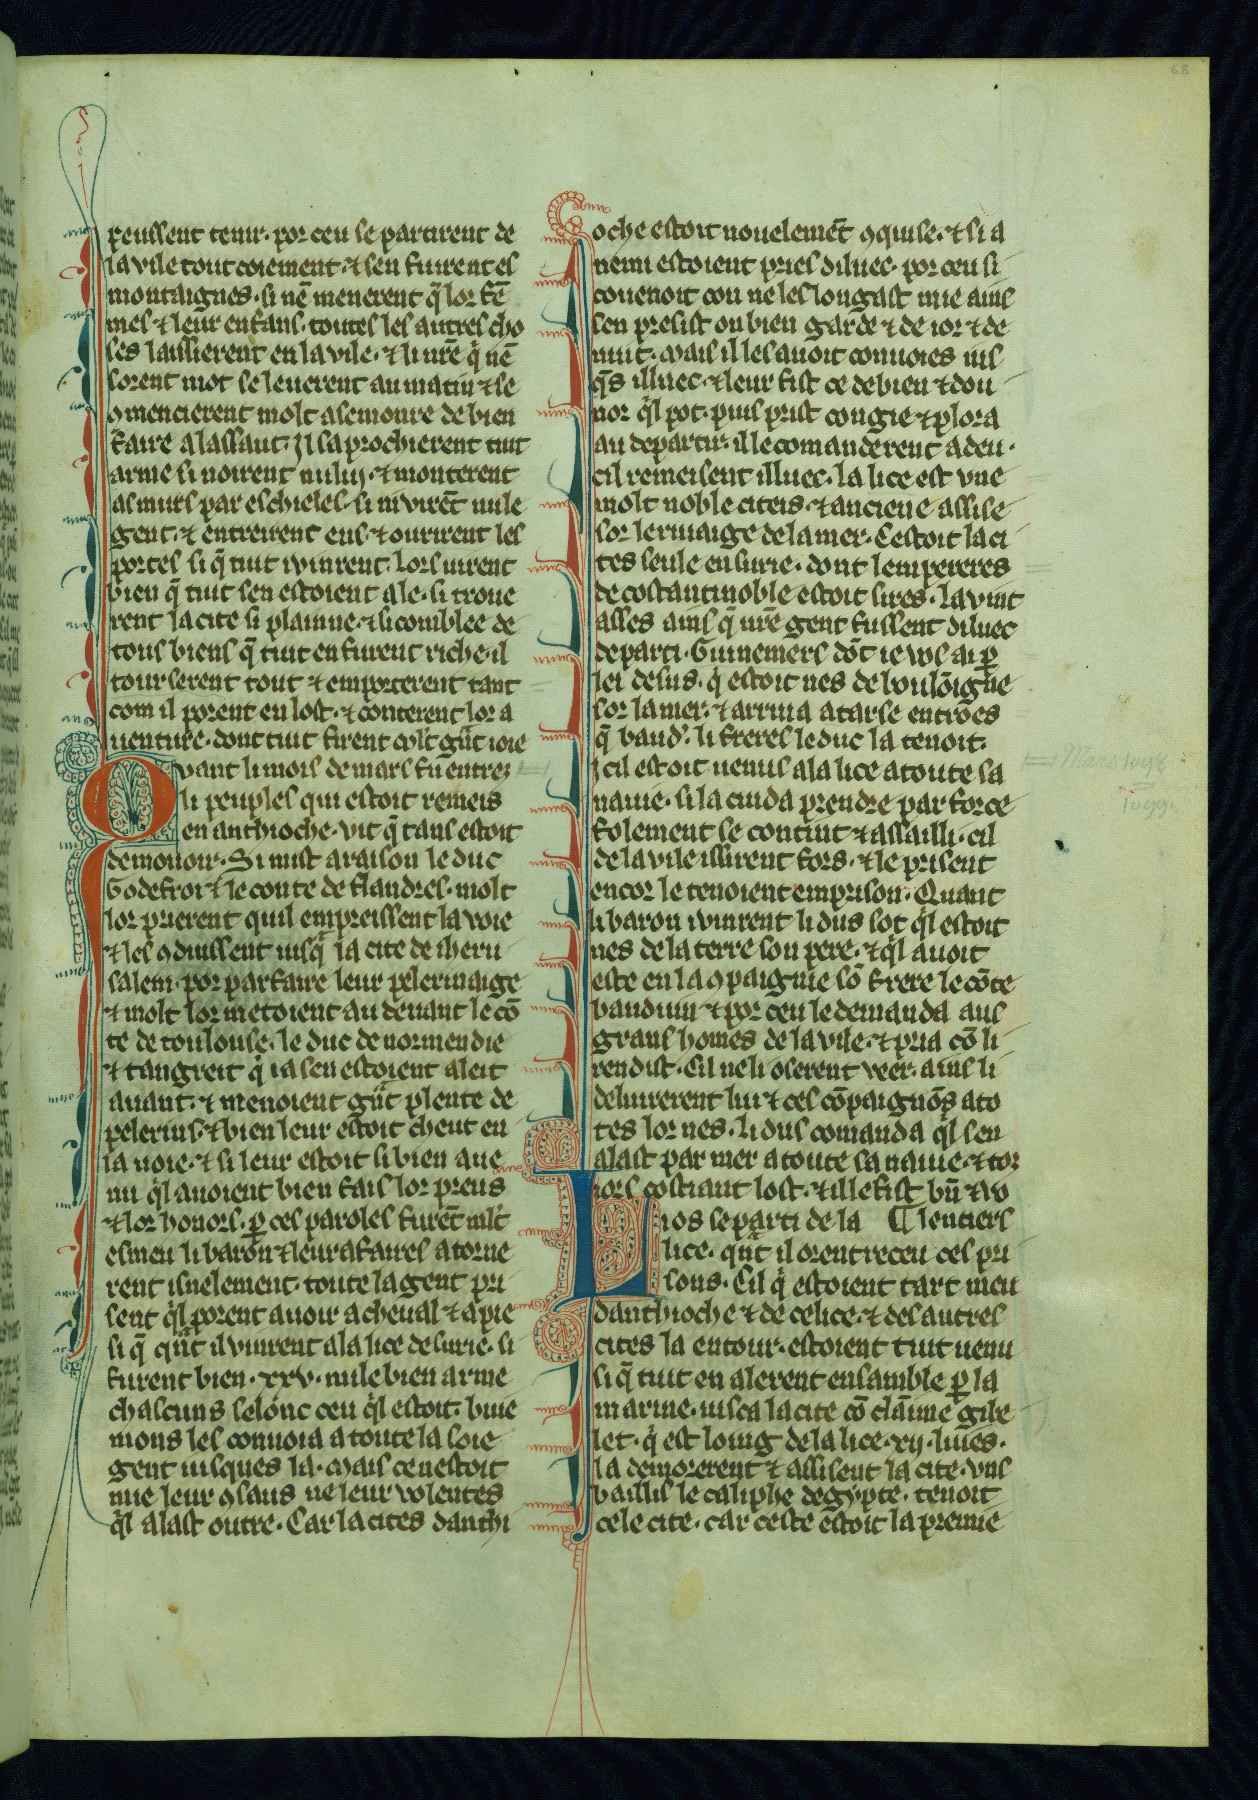 68
peussent tenir. por ceu se partirent de
la vile tout coiement. ⁊ sen fuirent es
montaignes. si nē menerent q̄ lor fē
mes ⁊ leur enfans. toutes les autres cho
ses laissierent en la vile. ⁊ li nr̄e q̇ nē
sorent mot se leuerent au matin ⁊ se
ꝯmencierent molt a semonre de bien
faire a lassaut. Il saprochierent tuit
arme si noirent nului. ⁊ monterent
as murs par eschieles. si ni virēt nule
gent. ⁊ entreirent ens. ⁊ ourirent les
portes si q̄ tuit i vinrent. Lors uirent
bien q̄ tuit sen estoient ale. si troue
rent la cite si plainne. ⁊ si comblee de
tous biens q̄ tuit en furent riche. il
tourserent tout ⁊ emporterent tant
com il porent en lost. ⁊ conterent lor a
uenture. dont tuit firent mlt̄ gn̄t ioie
Qvant li mois de mars fu entrez
li peuples qui estoit remeis
en anthioche. vit q̄ tans estoit
de mouoir. Si mist a raison le duc
Godefroi ⁊ le conte de flandres. molt
lor prierent quil empreissent la voie
⁊ les ꝯduissent iusq̄ la cite de iheru
salem. por parfaire leur pelerinaige
⁊ molt lor metoient au deuant le cō
te de toulouse. le duc de normendie
⁊ tangreit q̇ ia sen estoient aleit
auant. ⁊ menoient gn̄t plente de
pelerins. ⁊ bien leur estoit cheut en
la uoie. ⁊ si leur estoit si bien aue
nu q̇l auoient bien fais lor preus
⁊ lor honors. ꝑ ces paroles furēt mlt̄
esmeu li baron ⁊ leur afaires atorne
rent isnelement. toute la gent pri
sent q̇l porent auoir a cheual ⁊ a pie
si q̄ qn̄t il vinrent a la lice de surie. si
furent bien .xxv. mile bien arme
chascuns selonc ceu q̇l estoit. buie
mons les conuoia a toute la soie
gent iusques la. Mais ce nestoit
mie leur ꝯsaus ne leur volentes
q̇l alast outre. Car la cites danthi
oche estoit nouelemēt ꝯquise. ⁊ si a
nemi estoient pries diluec. por ceu si
couenoit con ne les longast mie ains
sen presist on bien garde ⁊ de ior ⁊ de
nuit. Mais il les auoit conuoies ius
q̄s illuec. ⁊ leur fist ce de bien ⁊ don
nor q̇l pot. puis prist congie ⁊ plora
au departir. il le comanderent a deu.
cil remeisent illuec. la lice est vne
molt noble citeis. ⁊ anciene assise
sor le riuaige de la mer. Cestoit la ci
tes seule en surie. dont lempereres
de costantinoble estoit sires. la vint
asses ains q̄ nr̄e gent fussent diluec
departi. Guinemers dōt ie vos ai ꝑ
lei desus. q̇ estoit nes de boulōigne
sor la mer. ⁊ arriua a tarse entroes
q̄ baud'. li freres le duc la tenoit.
Icil estoit uenus a la lice a toute sa
nauie. si la cuida prendre par force
folement se contint ⁊ assailli. cil
de la vile issirent fors. ⁊ le prisent
encor le tenoient em prison. Quant
li baron i vinrent li dus sot q̇l estoit
nes de la terre son pere. ⁊ q̇l auoit
este en la ꝯpaignie sō frere le cōte
bauduin ⁊ por ceu le demanda aus
grans homes de la vile. ⁊ pria cō li
rendist. Cil ne li oserent veer. ains li
deliurerent lui ⁊ ces cōpaignōs a to
tes lor nes. li dus comanda q̇l sen
alast par mer a toute sa nauie. ⁊ tor
iors costiant lost. ⁊ il le fist bn̄ ⁊ vo
lentiers
Lios se parti de la
lice. qn̄t il orent receu ces pri
sons. Cil q̇ estoient tart meu
danthioche ⁊ de celice. ⁊ des autres
cites la entour. estoient tuit uenu
si q̄ tuit en alerent ensamble ꝑ la
marine. iusca la cite cō claime gibe
let. q̇ est loing de la lice .xij. liues.
la demorerent ⁊ assisent la cite. vns
baillis le caliphe degypte. tenoit
cele cite. car ceste estoit la premie
Mars 1098
1099